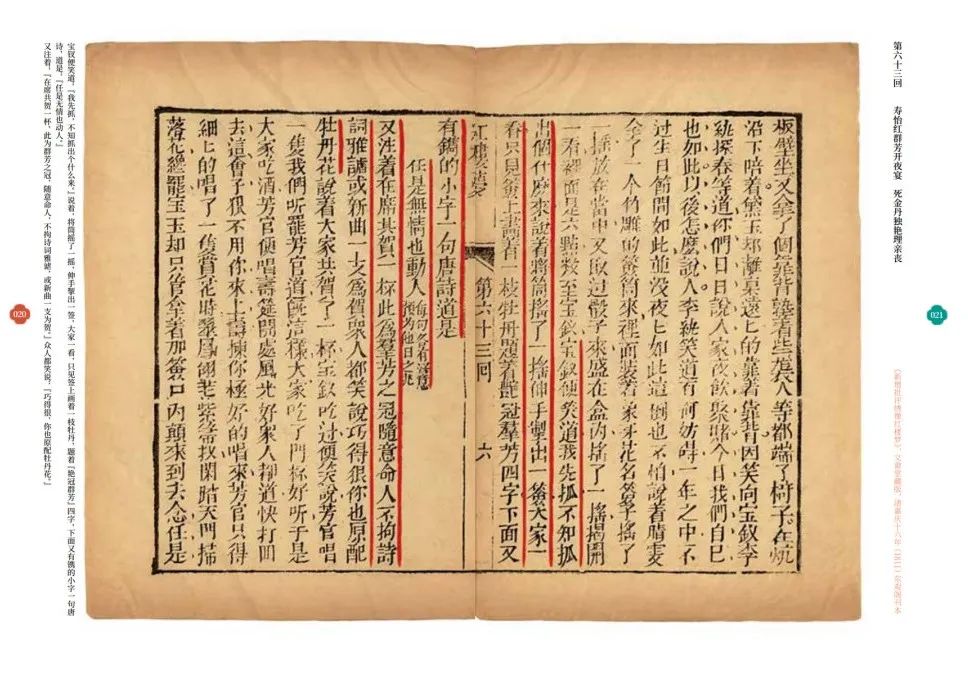 第六十三回　寿怡红群芳开夜宴　死金丹独艳理亲丧
021
《新增批评绣像红楼梦》，文畲堂藏版，清嘉庆十六年（1811）东观阁刊本
板壁坐又拿了個靠背墊着些襲人等都端了椅子在炕
沿下陪着黛玉却離桌遠匕的靠着靠背因笑向宝釵李
紈探春等道你們日日說人家夜飲聚賭今日我們自已
也如此以後怎麽說人李紈笑道有何妨碍一年之中不
过生日節間如此並没夜匕如此這倒也不怕說着晴雯
拿了一个竹雕的籤筒來裡面装着象牙花名籤子摇了
一摇放在當中又取过骰子來盛在盒内摇了一摇揭開
一看裡面是六點数至宝釵宝釵便笑道我先抓不知抓
出個什麽來說着將筒摇了一摇伸手掣出一籤大家一
看只見籤上畫着一枝牡丹題着艷冠羣芳四字下面又
红樓夢　第六十三回　六
有鐫的小字一句唐詩道是
任是無情也動人 每句各有寓意預为他日之兆
又注着在席共賀一杯此為羣芳之冠隨意命人不拘詩
詞雅謔或新曲一支為賀衆人都笑說巧得很你也原配
牡丹花說着大家共賀了一杯宝釵吃过便笑說芳官唱
一隻我們听罷芳官道旣這樣大家吃了門杯好听于是
大家吃酒芳官便唱壽筵開處風光好衆人都道快打囬
去這會子狠不用你來上壽揀你極好的唱來芳官只得
細匕的唱了一隻賞花時翠鳳翎毛紮箒扠閑踏天門掃
落花纔罷宝玉却只管拿着那籤口内顛來到去念任是
宝钗便笑道，『我先抓，不知抓出个什么来。』说着，将筒摇了一摇，伸手掣出一签，大家一看，只见签上画着一枝牡丹，题着『艳冠群芳』四字，下面又有镌的小字一句唐
诗，道是，『任是无情也动人。』
又注着，『在席共贺一杯，此为群芳之冠，随意命人，不拘诗词雅谑，或新曲一支为贺。』众人都笑说，『巧得很，你也原配牡丹花。』
020